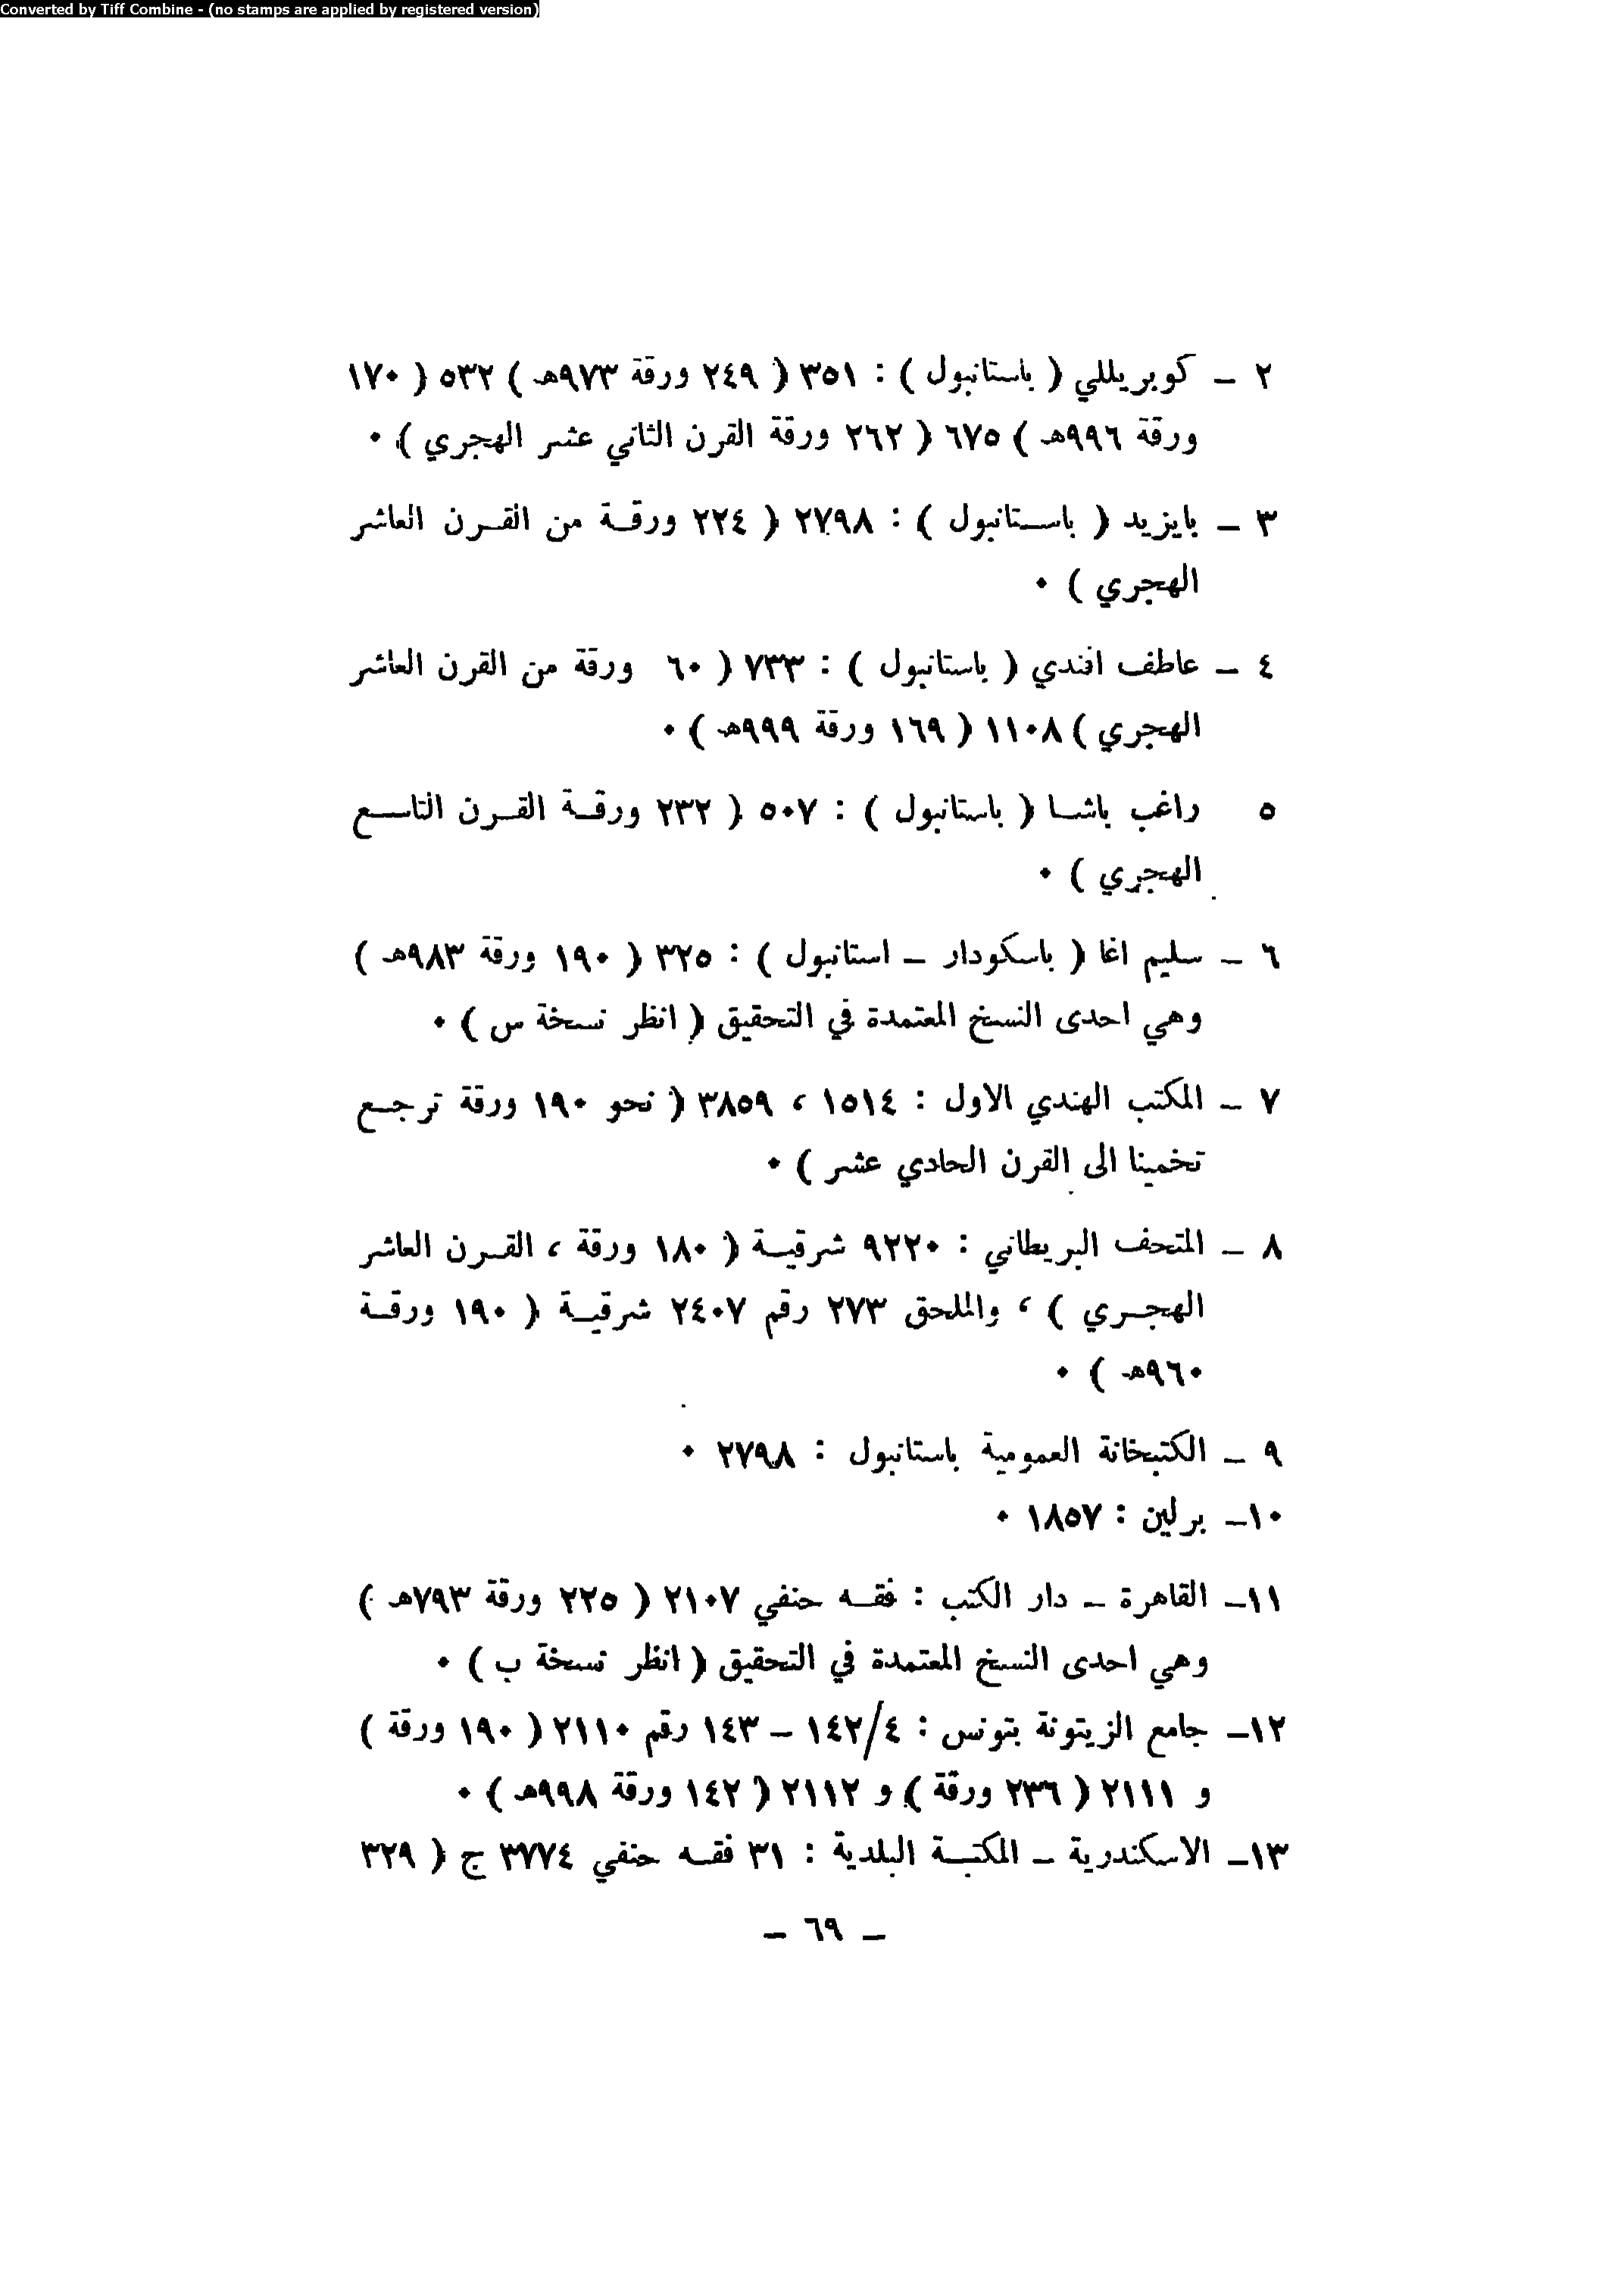 Converted by Tiff Combine - (no stamps are applied by registered version)
٢ – كوبريللي ( باستانبول ) : ٣٥١ ( ٢٤٩ ورقة ٩٧٣هـ ) ٥٣٢ ( ١٧٠
ورقة ٩٩٦هـ ) ٦٧٥ ( ٢٦٢ ورقة القرن الثاني عشر الهجري ) ٠
٣ – بايزيد ( باستانبول ) : ٢٧٩٨ ( ٢٢٤ ورقة من القرن العاشر
الهجري ) ٠
٤ – عاطف افندي ( باستانبول ) : ٧٣٣ ( ٦٠ ورقة من القرن العاشر
الهجري ) ١١٠٨ ( ١٦٩ ورقة ٩٩٩هـ ) ٠
٥ راغب باشا ( باستانبول ) : ٥٠٧ ( ٢٣٢ ورقة القرن التاسع
الهجري ) ٠
٦ – سليم اغا ( باسكودار – استانبول ) : ٣٢٥ ( ١٩٠ ورقة ٩٨٣هـ )
وهي احدى النسخ المعتمدة في التحقيق ( انظر نسخة س ) ٠
٧ – المكتب الهندي الاول : ١٥١٤ ، ٣٨٥٩ ( نحو ١٩٠ ورقة ترجع
تخمينا الى القرن الحادي عشر ) ٠
٨ – المتحف البريطاني : ٩٢٢٠ شرقية ( ١٨٠ ورقة ، القرن العاشر
الهجري ) ، والملحق ٢٧٣ رقم ٢٤٠٧ شرقية ( ١٩٠ ورقة
٩٦٠هـ ) ٠
٩ – الكتبخانة العمومية باستانبول : ٢٧٩٨ ٠
١٠– برلين : ١٨٥٧ ٠
١١– القاهرة – دار الكتب : فقه حنفي ٢١٠٧ ( ٢٢٥ ورقة ٧٩٣هـ )
وهي احدى النسخ المعتمدة في التحقيق ( انظر نسخة ب ) ٠
١٢– جامع الزيتونة بتونس : ١٤٢/٤ – ١٤٣ رقم ٢١١٠ ( ١٩٠ ورقة )
و ٢١١١ ( ٢٣٦ ورقة ) و ٢١١٢ ( ١٤٢ ورقة ٩٩٨هـ ) ٠
١٣– الاسكندرية – المكتبة البلدية : ٣١ فقه حنفي ٣٧٧٤ ج ( ٣٢٩
– ٦٩ –